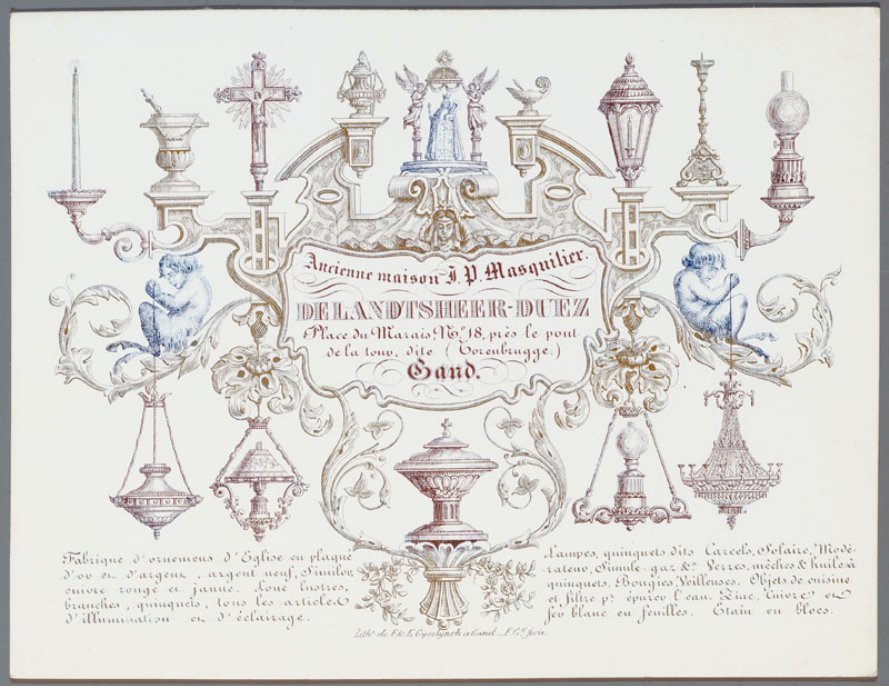 Ancienne maison J. P. Masquilier.
DELANDTSHEER-DUEZ
Place du Marais, No. 18, près le pont
de la tour, dite (Torenbrugge.)
Gand.
Fabrique d'ornemens d'Eglise en plaqué
d'or et d'argent, argent neuf, Similor
cuivre rouge et jaune. Loue lustres,
branches, quinquets, tous les articles
d'illumination et d'éclairage.
Lampes, quinquets dits Carcels, Solaire, Modé-
rateur, Simule-gaz &a. Verres, mèches & huile à
quinquets. Bougies, Veilleuses. Objets de cuisine
et filtre pr. épurer l'eau. Zinc, Cuivre et
fer blanc en feuilles. Etain en blocs.
Lith. de F. & E. Gyselynck à Gand.